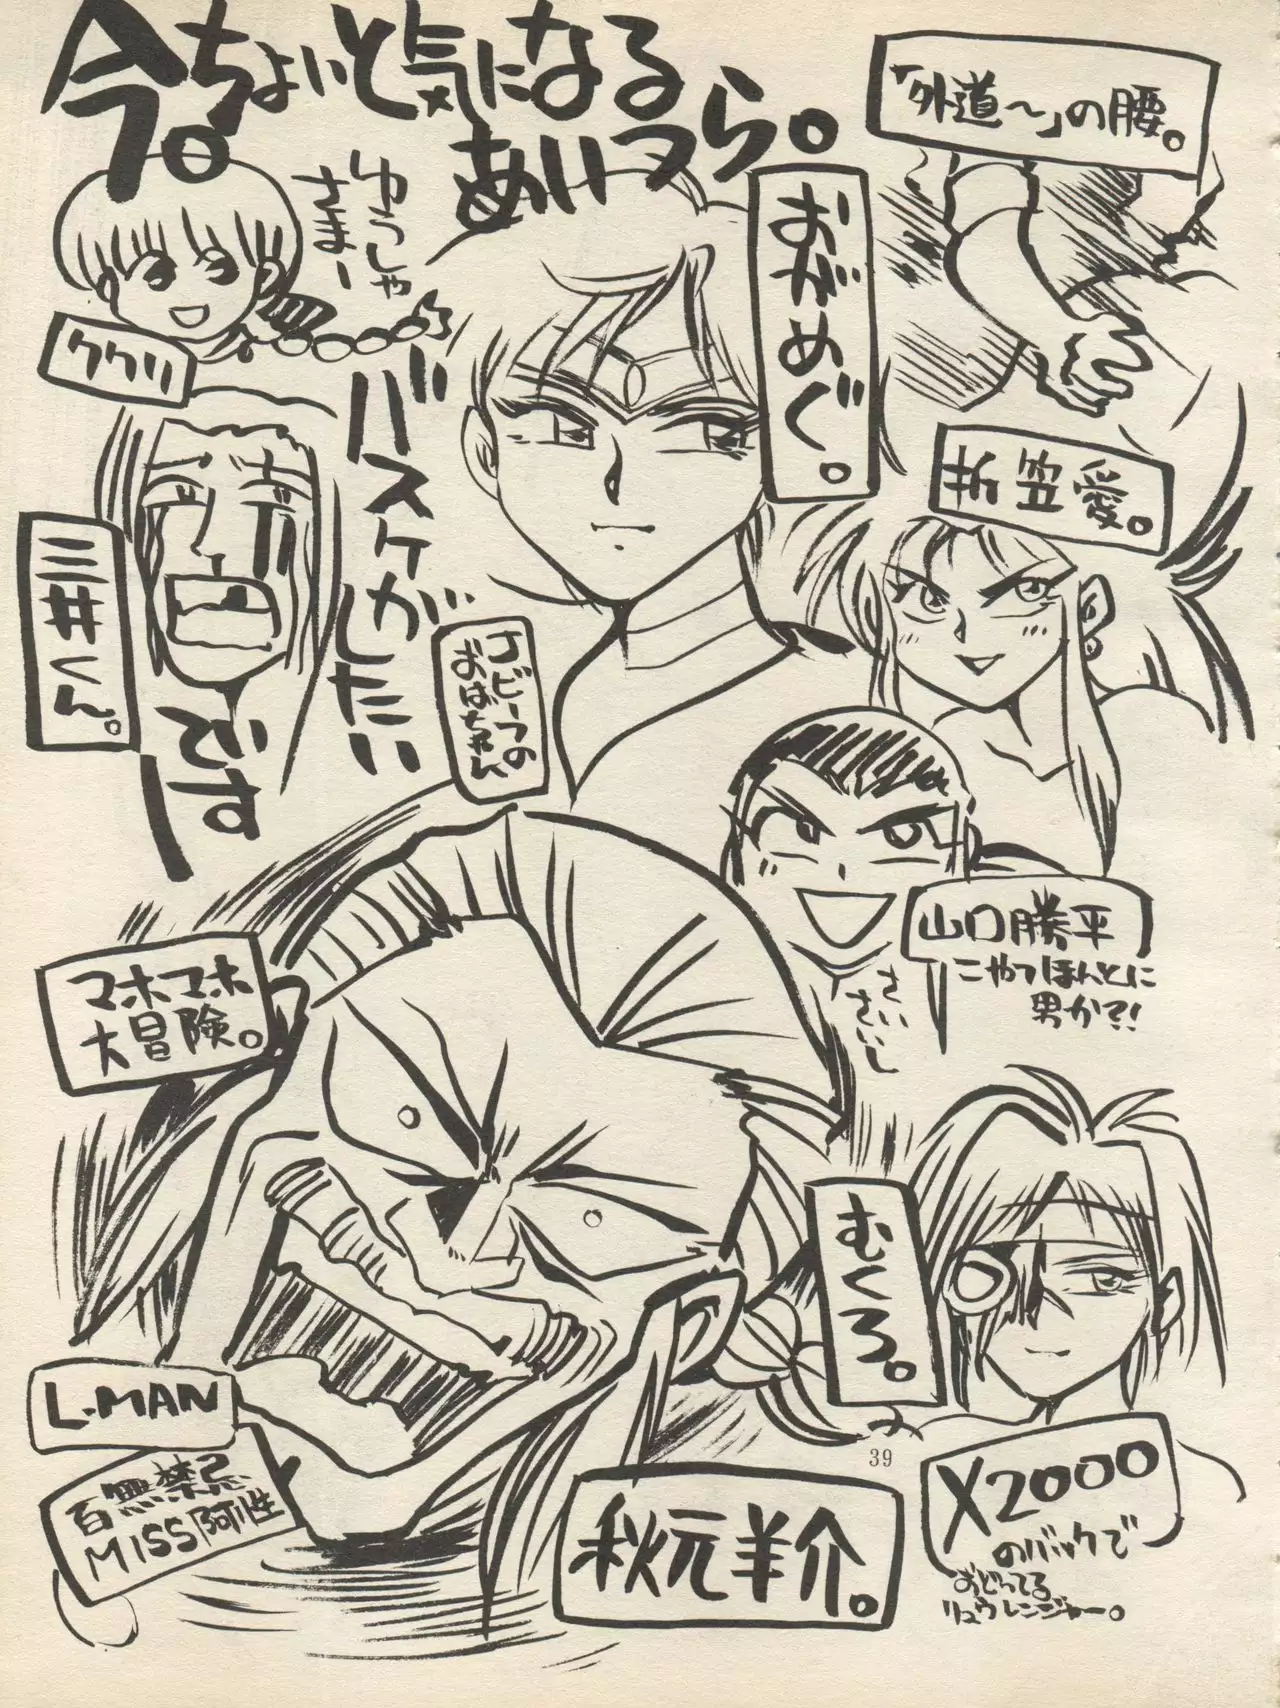 今。ちょいと気になる
あいつら。
「外道〜」の腰。
ゆうしゃ
さまー
ククリ
おがめぐ。
バスケがしたい
ですー
三井くん。
折笠愛。
Jビーフの
おばちゃん
山口勝平
こやつほんとに
男か?!
ささいし
マホマホ
大冒険。
むくろ。
L・MAN
百無禁忌
MISS阿性
39
秋元羊介。
X2000
のバックで
おどってる
リュウレンジャー。